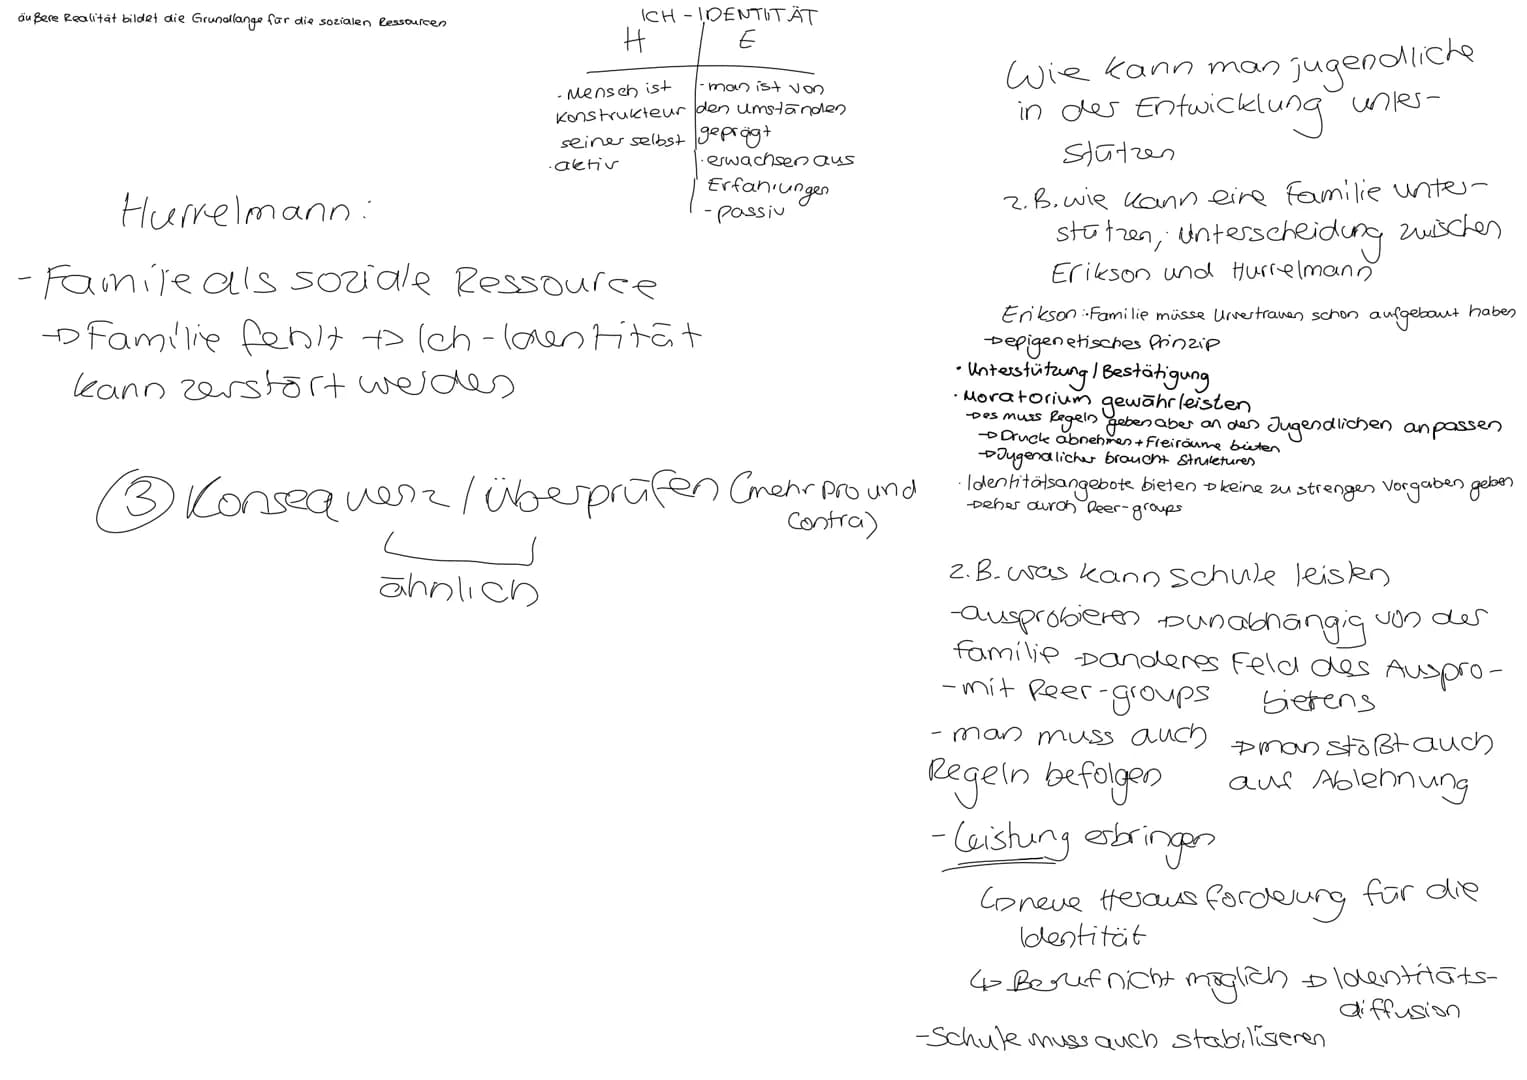 äußere Realität bildet die Grundlange für die sozialen Ressourcen
ICH-IDENTITÄT
H E
- Mensch ist
Konstrukteur
seiner selbst
- aktiv
- man ist von
den Umständen
geprägt
- erwachsen aus
Erfahrungen
- passiv
Hurrelmann:
- Familie als soziale Ressource
→ Familie fehlt → Ich-Identität
kann zerstört werden
③ Konsequenz / überprüfen (mehr pro und
contra)
ähnlich
Wie kann man jugendliche
in der Entwicklung unter-
stützen
z.B. wie kann eine Familie unter-
stützen, Unterscheidung zwischen
Erikson und Hurrelmann
Erikson: Familie müsse Urvertrauen schon aufgebaut haben
→ epigenetisches Prinzip
• Unterstützung / Bestätigung
• Moratorium gewährleisten
→ es muss Regeln geben aber an den Jugendlichen anpassen
→ Druck abnehmen + Freiräume bieten
→ Jugendlicher braucht Strukturen
• Identitätsangebote bieten → keine zu strengen Vorgaben geben
→ eher durch Peer-groups
z.B. was kann schule leisten
- ausprobieren → unabhängig von der
familie → anderes Feld des Auspro-
bierens
- mit Peer-groups
- man muss auch
Regeln befolgen
→ man stößt auch
auf Ablehnung
- Leistung erbringen
↳ neue Herausforderung für die
Identität
↳ Beruf nicht möglich → Identitäts-
diffusion
- Schule muss auch stabilisieren